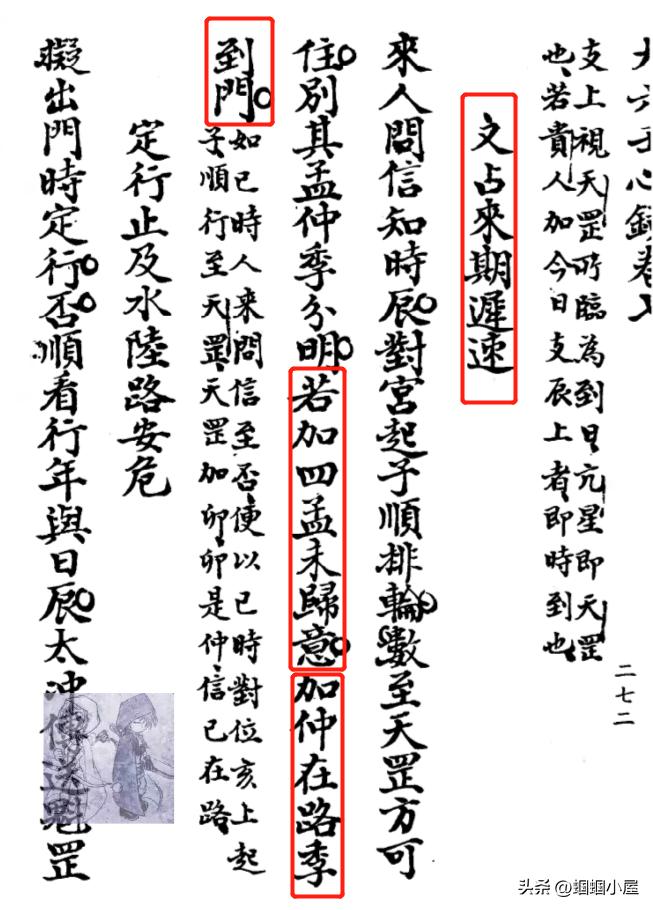 大六壬心鏡卷
二七二
支上視天罡所臨為到日亢星即天罡
也若貴人加今日支辰上者即時到也
文占來期遲速
來人問信知時辰對宮起子順排輪數至天罡方可
住別其孟仲季分明若加四孟未歸意加仲在路季
到門
如巳時人來問信至否便以巳時對位亥上起
子順行至天罡天罡加卯卯是仲信已在路
定行止及水陸路安危
擬出門時定行否順看行年與日辰太冲傳送魁罡
头条 @蝈蝈小屋